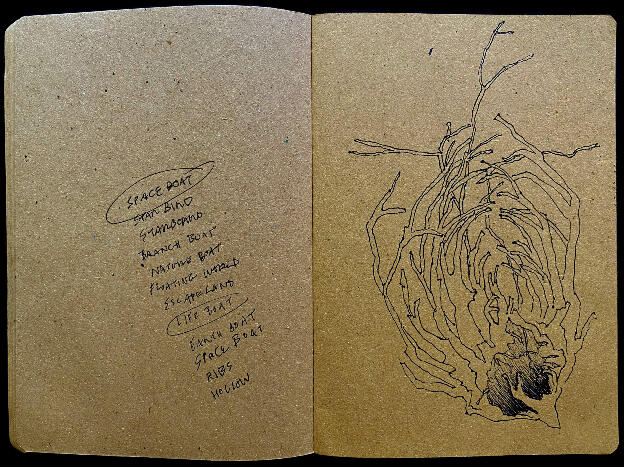 SPACE BOAT
STAR BIND
STARBOARD
BRANCH BOAT
NATURE BOAT
FLOATING WORLD
ESCAPE LAND
LIFE BOAT
EARTH BOAT
SPACE BOAT
RIBS
HOLLOW